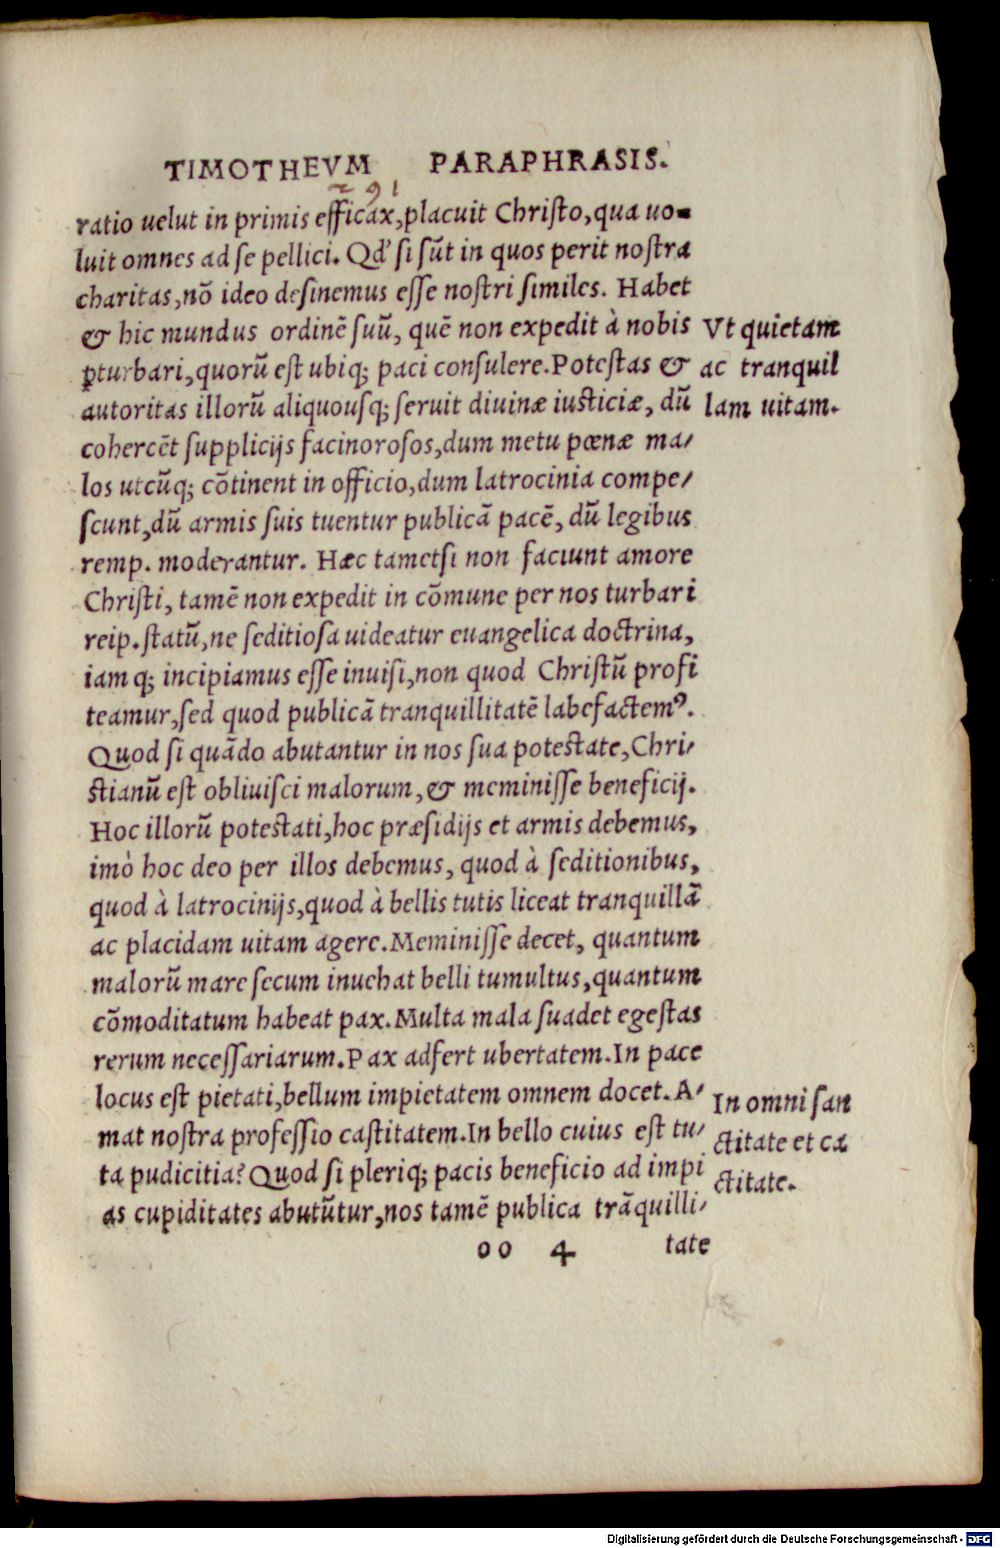 TIMOTHEVM PARAPHRASIS.
ratio uelut in primis efficax, placuit Christo, qua uo-
luit omnes ad se pellici. Qd' si sũt in quos perit nostra
charitas, nõ ideo desinemus esse nostri similes. Habet
& hic mundus ordinẽ suũ, quẽ non expedit à nobis
Vt quietam
ꝑturbari, quorũ est ubiqꝫ paci consulere. Potestas &
ac tranquil
autoritas illorũ aliquousqꝫ seruit diuinæ iusticiæ, dũ
lam uitam.
cohercẽt supplicijs facinorosos, dum metu pœnæ ma/
los utcũqꝫ cõtinent in officio, dum latrocinia compe/
scunt, dũ armis suis tuentur publicã pacẽ, dũ legibus
remp. moderantur. Hæc tametsi non faciunt amore
Christi, tamẽ non expedit in cõmune per nos turbari
reip. statũ, ne seditiosa uideatur euangelica doctrina,
iam qꝫ incipiamus esse inuisi, non quod Christũ profi
teamur, sed quod publicã tranquillitatẽ labefactemꝰ.
Quod si quãdo abutantur in nos sua potestate, Chri/
stianũ est obliuisci malorum, & meminisse beneficij.
Hoc illorũ potestati, hoc præsidijs et armis debemus,
imò hoc deo per illos debemus, quod à seditionibus,
quod à latrocinijs, quod à bellis tutis liceat tranquillã
ac placidam uitam agere. Meminisse decet, quantum
malorũ mare secum inuehat belli tumultus, quantum
cõmoditatum habeat pax. Multa mala suadet egestas
rerum necessariarum. Pax adfert ubertatem. In pace
locus est pietati, bellum impietatem omnem docet. A/
In omni san
mat nostra professio castitatem. In bello cuius est tu/
ctitate et ca
ta pudicitia? Quod si pleriqꝫ pacis beneficio ad impi
ctitate.
as cupiditates abutũtur, nos tamẽ publica trãquilli/
oo 4 tate
Digitalisierung gefördert durch die Deutsche Forschungsgemeinschaft - DFG